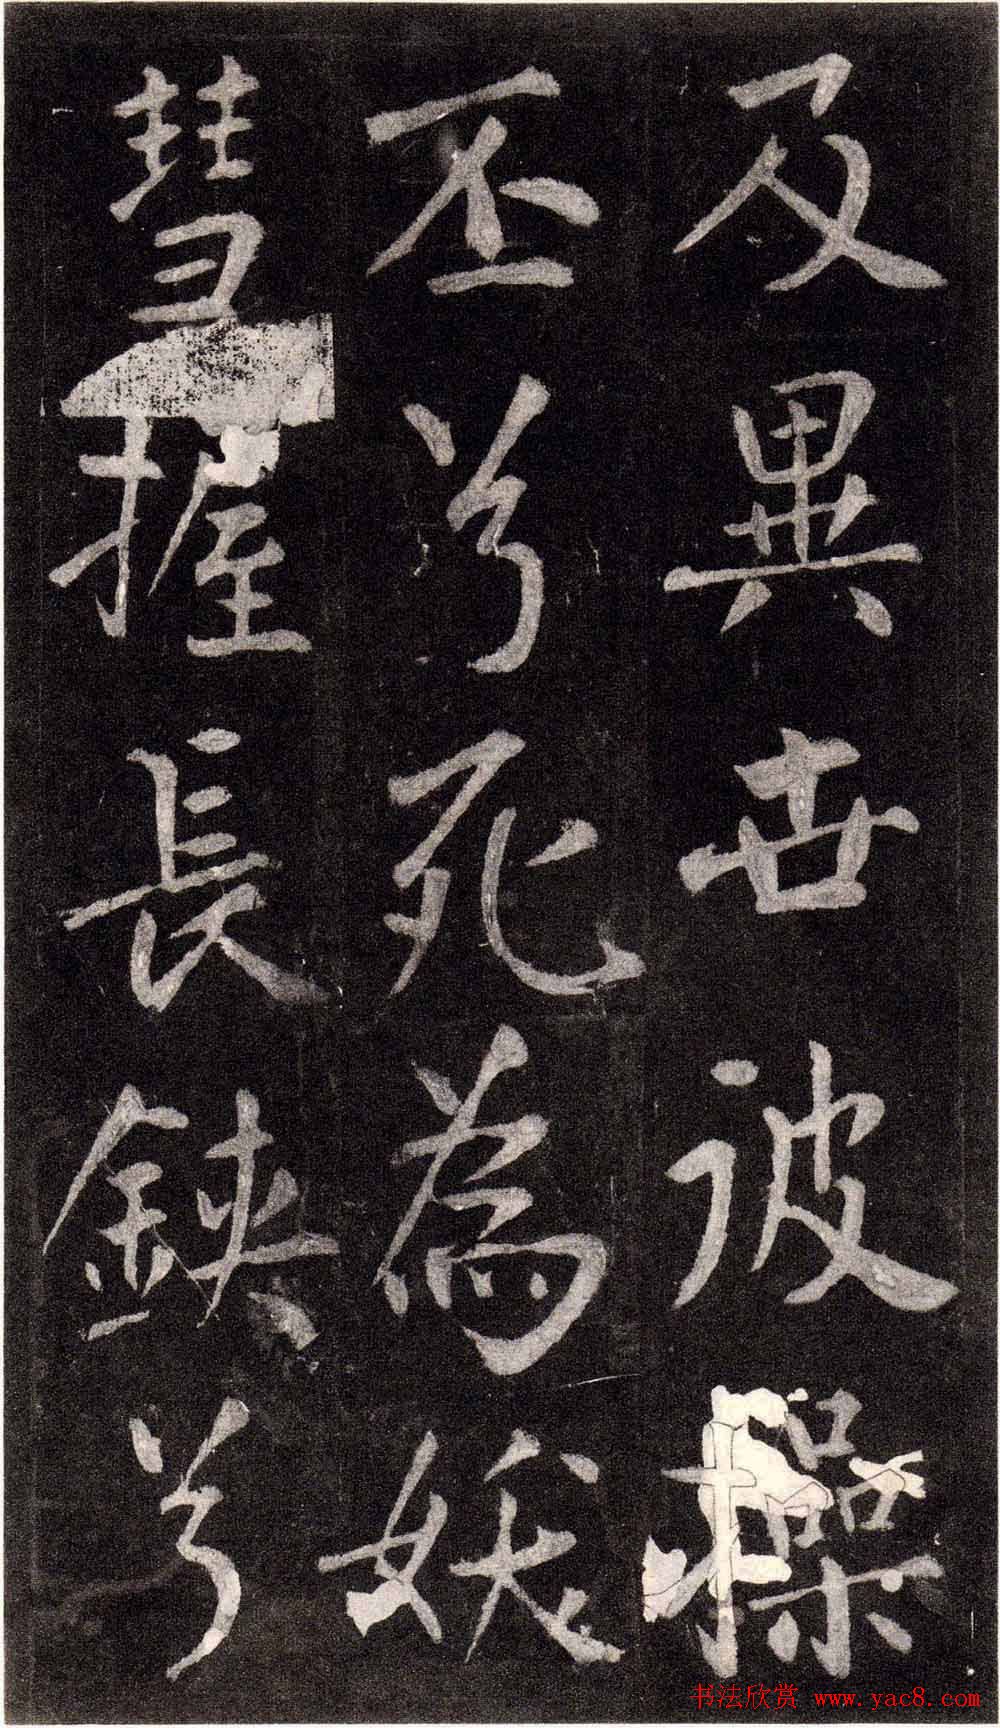 及異世詖操
丕兮死為妖
彗握長鋏兮
书法欣赏 www.yac8.com